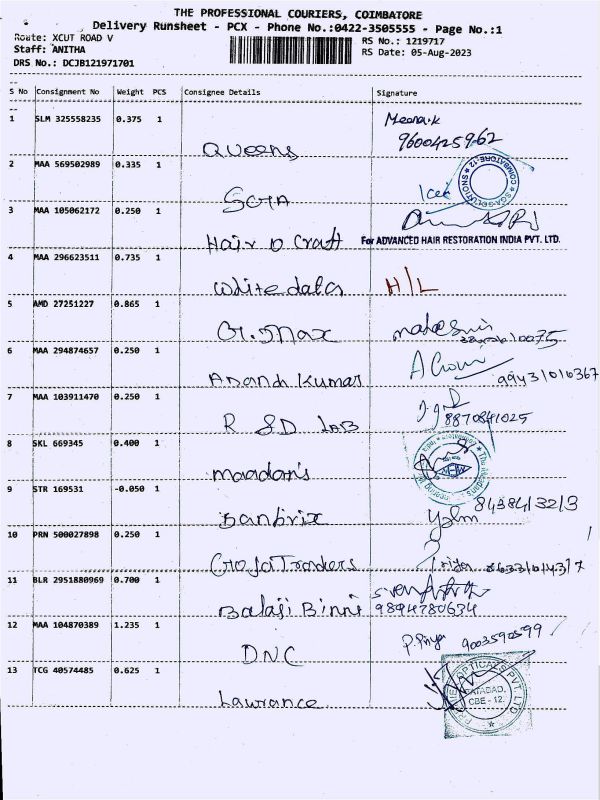 THE PROFESSIONAL COURIERS, COIMBATORE
Delivery Runsheet - PCX - Phone No.:0422-3505555 - Page No.:1
Route: XCUT ROAD V
RS No.: 1219717
Staff: ANITHA
RS Date: 05-Aug-2023
DRS No.: DCJB121971701
S No Consignment No Weight PCS Consignee Details Signature
1 SLM 325558235 0.375 1
9600425962
Queens
2 MAA 569502989 0.335 1
COIMBATORE-12
SGA
3 MAA 105062172 0.250 1
Hair O Craft For ADVANCED HAIR RESTORATION INDIA PVT. LTD.
4 MAA 296623511 0.735 1
White data H/L
5 AMD 27251227 0.865 1
G.Max
6 MAA 294874657 0.250 1
Anandh Kumar 99431010367
7 MAA 103911470 0.250 1
R &D LAB 8870841025
8 SKL 669345 0.400 1
maadan's
9 STR 169531 -0.050 1
Banbrix
10 PRN 500027898 0.250 1
Goja Traders
11 BLR 2951880969 0.700 1
Balaji Binni 9894780634
12 MAA 104870389 1.235 1
P. Priya 9003590599
DNC
13 TCG 40574485 0.625 1
OPTICALS PVT. LTD
CBE - 12.
Lawrance